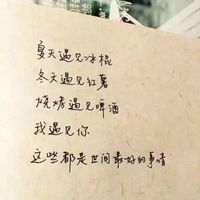 夏天遇见冰棍
冬天遇见红薯
烧烤遇见啤酒
我遇见你
这些都是世间最好的事情